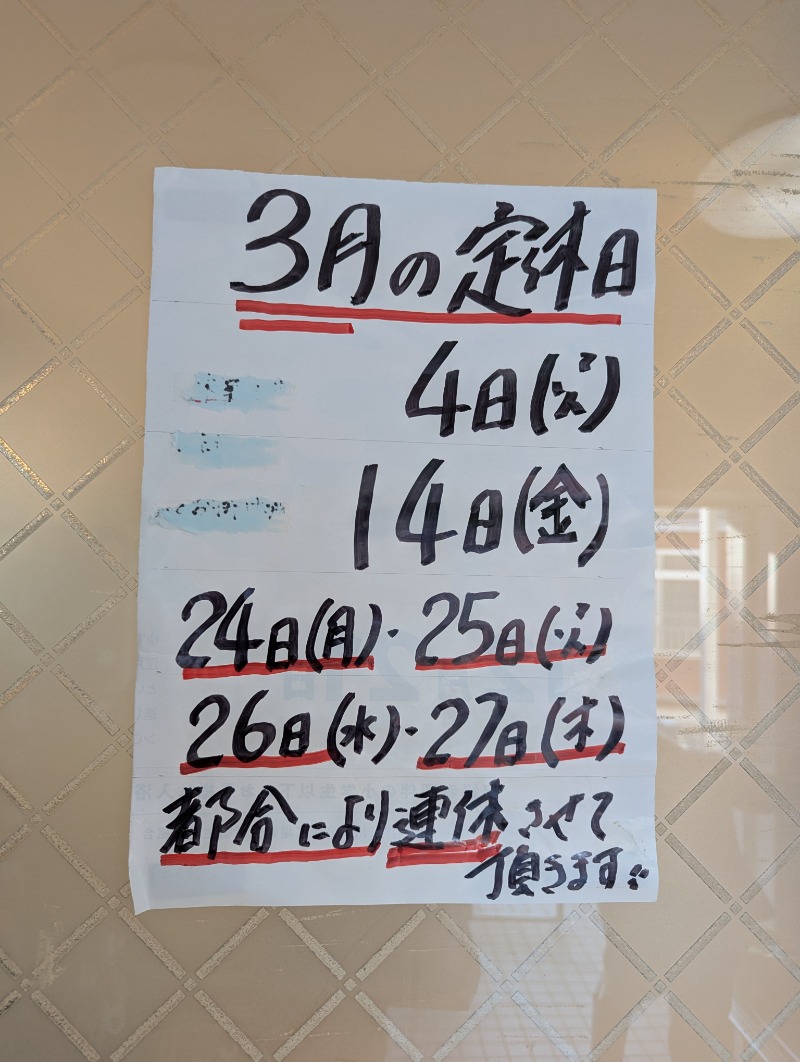 3月の定休日
4日(火)
14日(金)
24日(月)・25日(火)
26日(水)・27日(木)
都合により連休させて
頂きます